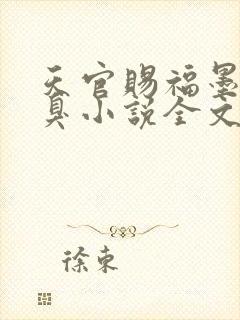 天官賜福墨
臭小説全文
徐東